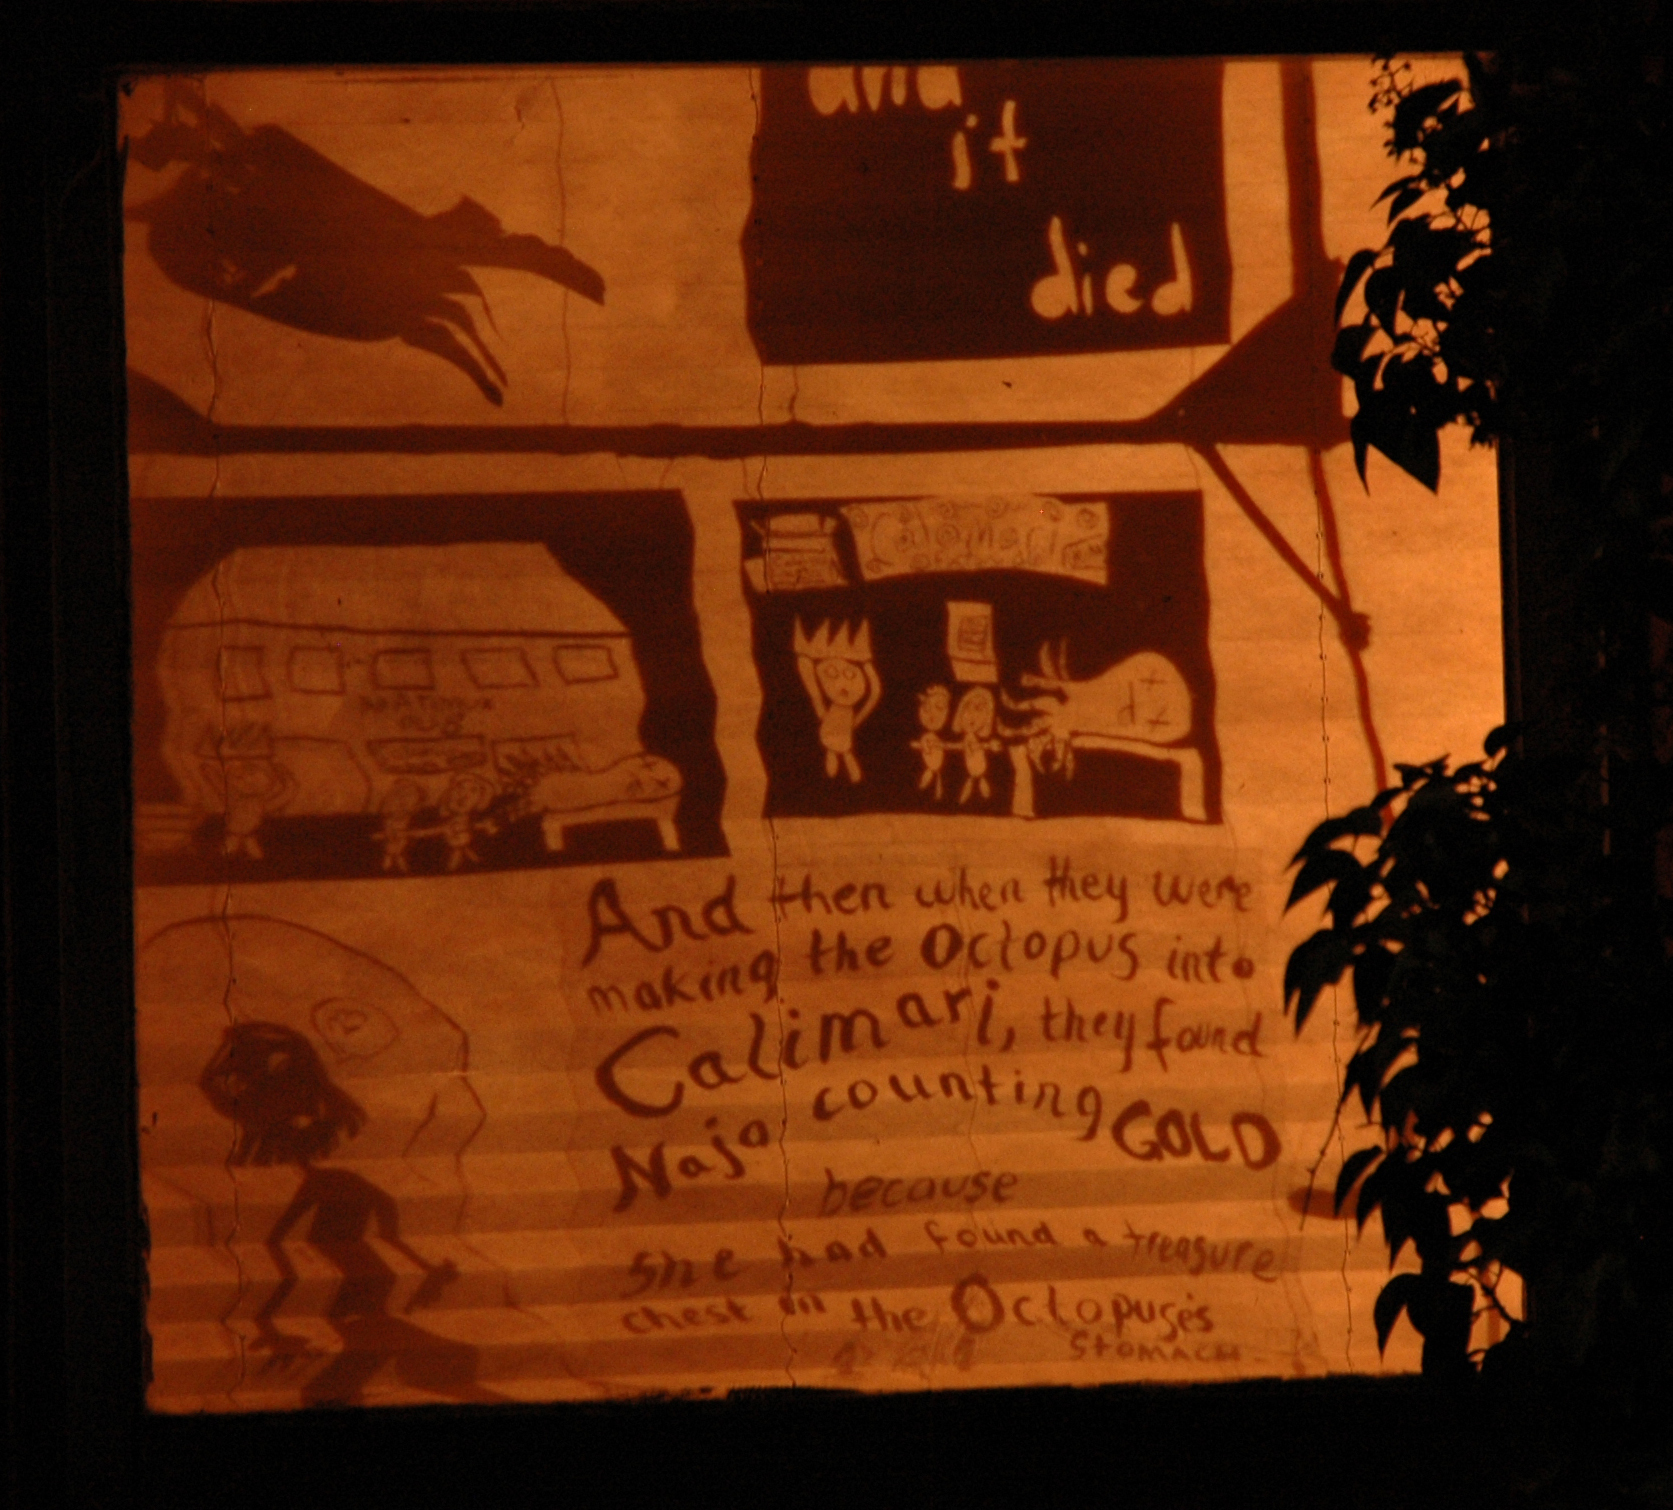 and
it
died
Calamari
And then when they were
making the Octopus into
Calimari, they found
Naja counting GOLD
because
She had found a treasure
chest in the Octopus's
STOMACH